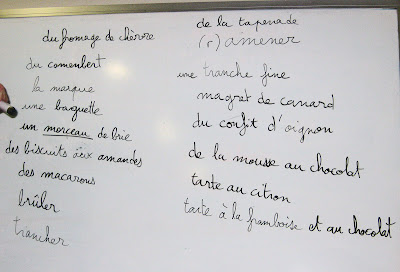 du fromage de chèvre
du camembert
la marque
une baguette
un morceau de brie
des biscuits aux amandes
des macarons
brûler
trancher
de la tapenade
(r)amener
une tranche fine
magret de canard
du confit d'oignon
de la mousse au chocolat
tarte au citron
tarte à la framboise et au chocolat